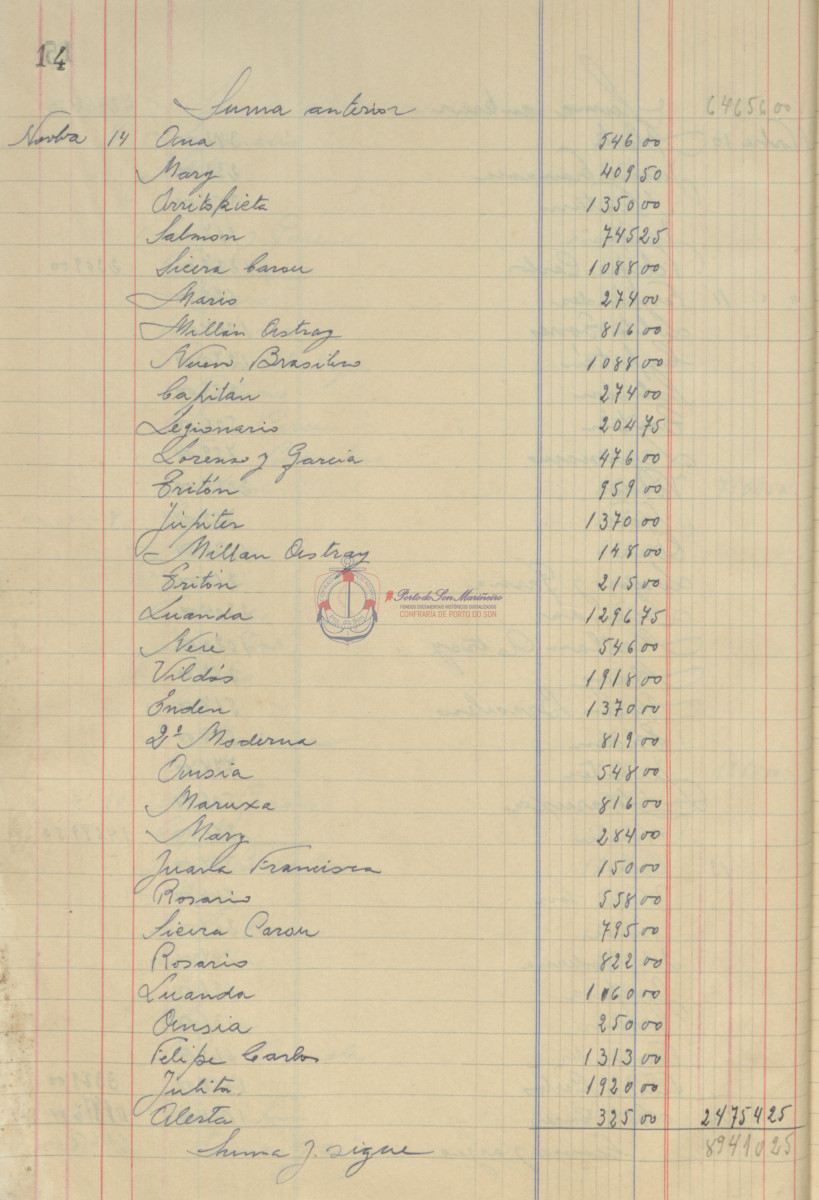 14
Suma anterior 64656 00
Novbre 14 Ana 546 00
Mary 409 50
Arritokieta 1350 00
Salmon 745 25
Sieira Carou 1088 00
Mario 274 00
Millán Astray 816 00
Nuevo Brasilino 1088 00
Capitán 274 00
Legionario 204 75
Lorenzo y Garcia 476 00
Tritón 959 00
Júpiter 1370 00
Millan Astray 148 00
Tritón 215 00
Luanda 1296 75
Nere 546 00
Vildós 1918 00
Enden 1370 00
2ª Moderna 819 00
Ansia 548 00
Maruxa 816 00
Mary 284 00
Juana Francisca 150 00
Rosario 558 00
Sieira Carou 795 00
Rosario 822 00
Luanda 1060 00
Ansia 250 00
Felipe Carlos 1313 00
Julita. 1920 00
Alerta 325 00 24754 25
Suma y sigue 89410 25
Porto do Son Mariñeiro
FONDOS DOCUMENTAIS HISTÓRICOS DIXITALIZADOS
CONFRARÍA DE PORTO DO SON